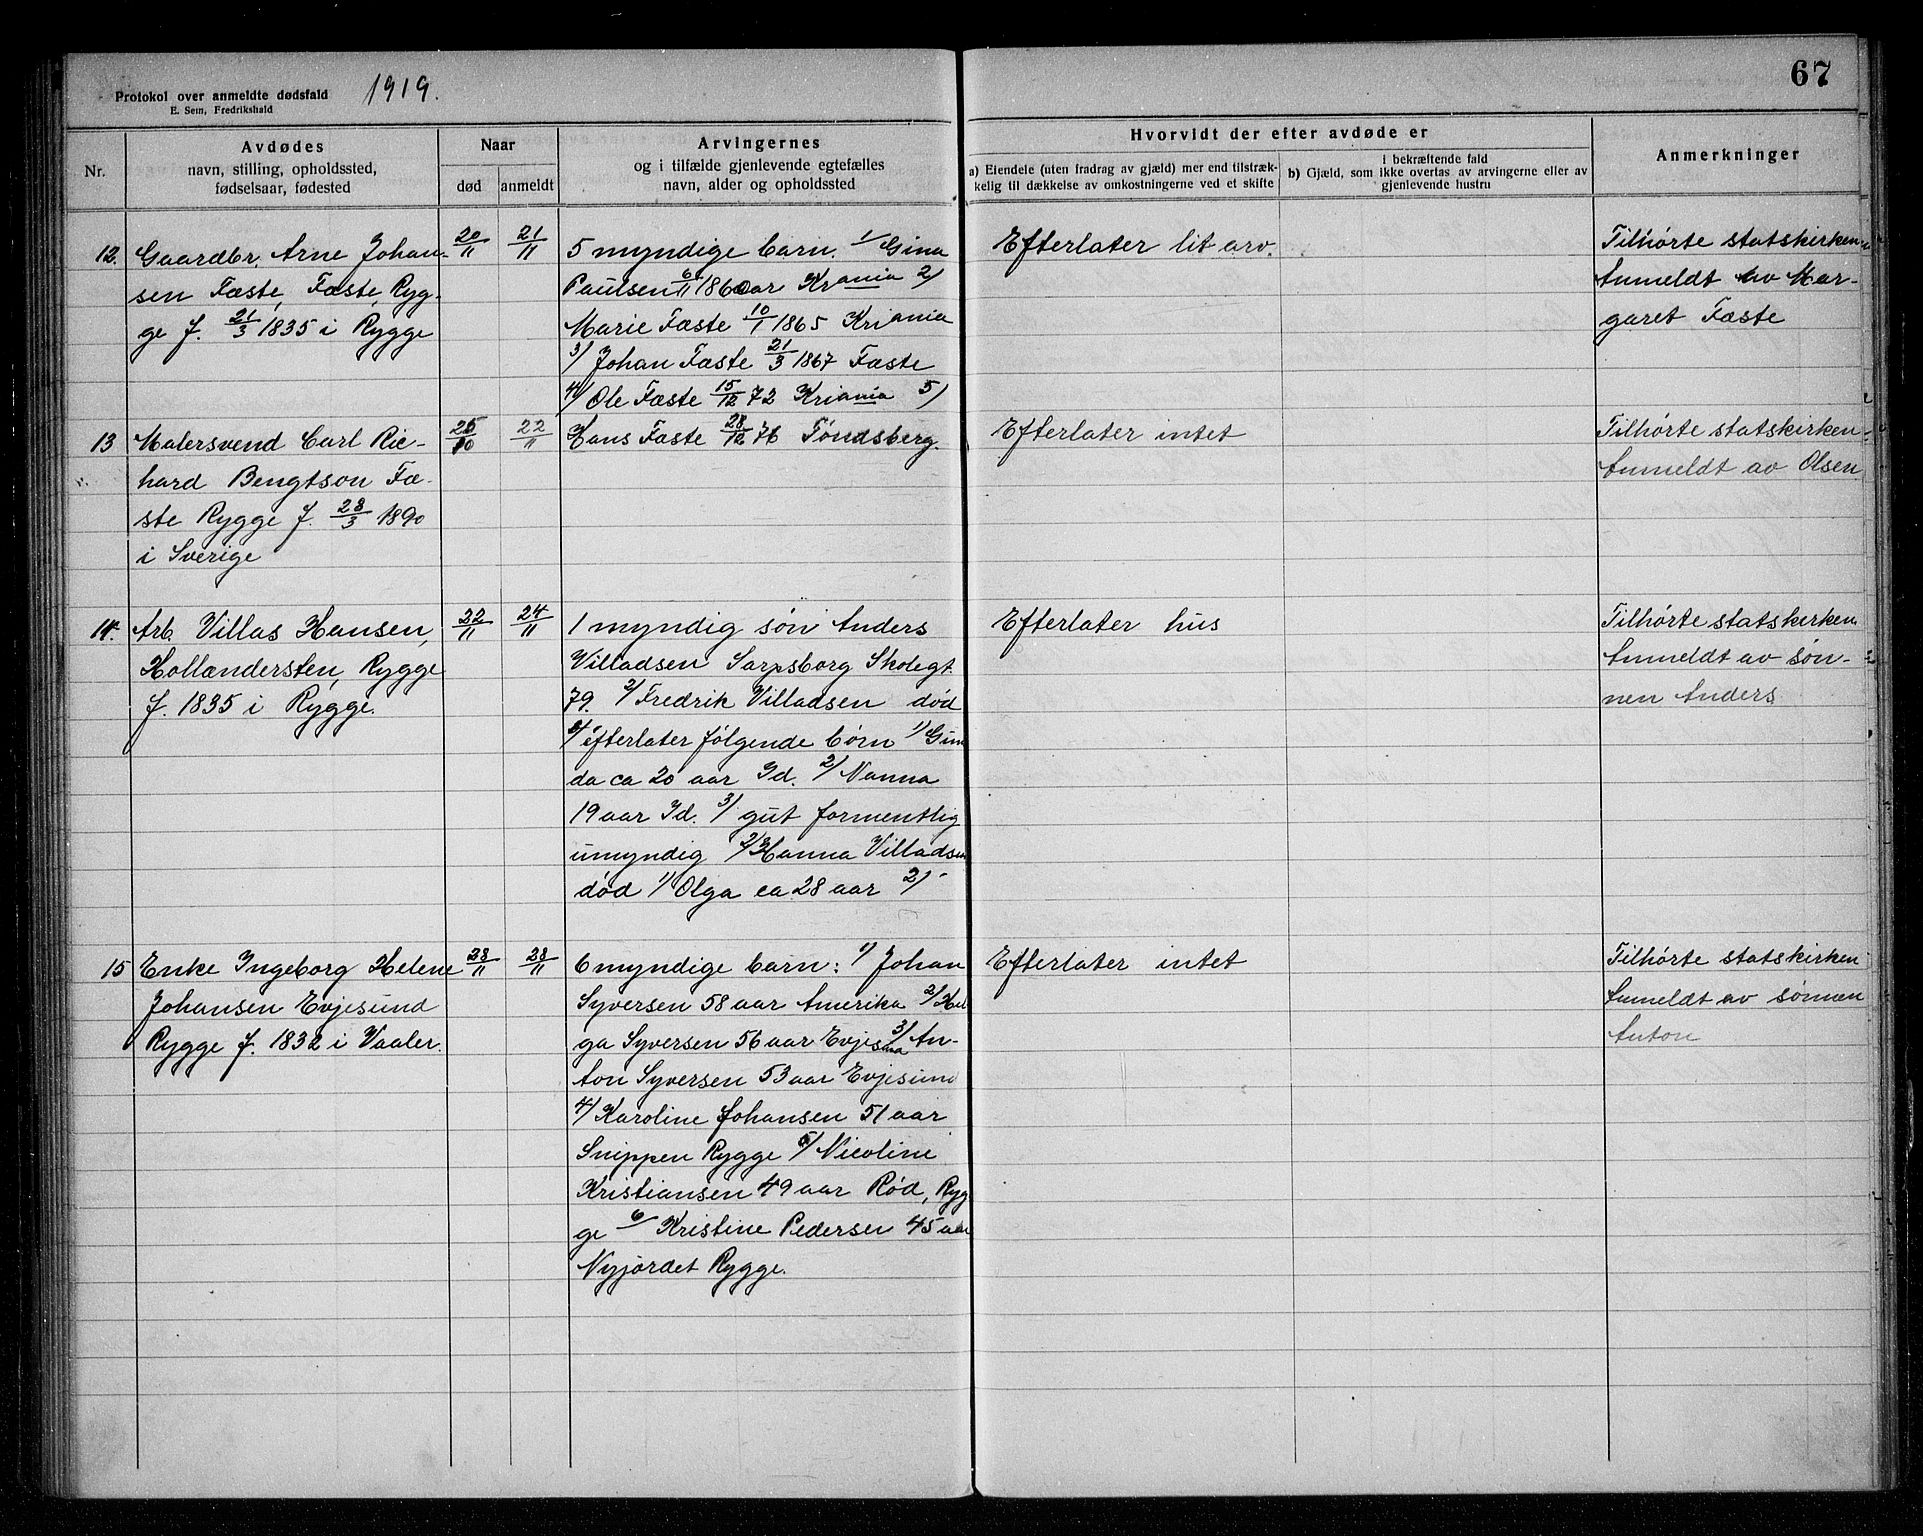 Protokol over anmeldte dødsfald 1919.
E. Sem, Fredrikshald
67
Nr.
Avdødes
navn, stilling, opholdssted,
fødselsaar, fødested
Naar
død
anmeldt
Arvingernes
og i tilfælde gjenlevende egtefælles
navn, alder og opholdssted
Hvorvidt der efter avdøde er
a) Eiendele (uten fradrag av gjæld) mer end tilstræk-
kelig til dækkelse av omkostningerne ved et skifte
i bekræftende fald
b) Gjæld, som ikke overtas av arvingerne eller av
gjenlevende hustru
Anmerkninger
12.
Gaardbr. Arne Johan-
sen Fæste, Fæste, Ryg-
ge f. 21/3 1835 i Rygge
20/11
21/11
5 myndige barn. 1/ Gina
Paulsen 6/11 1860 aar Krania 2/
Marie Fæste 10/1 1865 Kriania
3/ Johan Fæste 21/3 1867 Fæste
4/ Ole Fæste 15/12 72 Kriania 5/
Hans Fæste 28/12 76 Tøndsberg.
Efterlater lit arv.
Tilhørte statskirken
Anmeldt av Mar-
garet Fæste
13
Malersvend Carl Ric-
hard Bengtson Fæ-
ste Rygge f. 28/3 1890
i Sverige
25/10
22/11
Efterlater intet
Tilhørte statskirken
Anmeldt av Olsen
14.
Arb. Villas Hansen,
Hollændersten, Rygge
f. 1835 i Rygge.
22/11
24/11
1 myndig søn Anders
Villadsen Sarpsborg Skolegt.
79. 2/ Fredrik Villadsen død
efterlater følgende børn 1/ Gun
da ca 20 aar Id. 2/ Nanna
19 aar Id. 3/ gut formentlig
umyndig 2/ Hanna Villadsen
død 1/ Olga ca 28 aar 2/
Efterlater hus
Tilhørte statskirken
Anmeldt av søn-
nen Anders
15
Enke Ingeborg Helene
Johansen Evjesund
Rygge f. 1832 i Vaaler.
28/11
28/11
6 myndige barn: 1/ Johan
Syversen 58 aar Amerika 2/ Hel
ga Syversen 56 aar 3/ An-
ton Syversen 53 aar Evjesund
4/ Karoline Johansen 51 aar
Snippen Rygge 5/ Nicoline
Kristiansen 49 aar Rød, Ryg
ge 6/ Kristine Pedersen 45 aar
Nyjordet Rygge.
Efterlater intet
Tilhørte statskirken
Anmeldt av sønnen
Anton